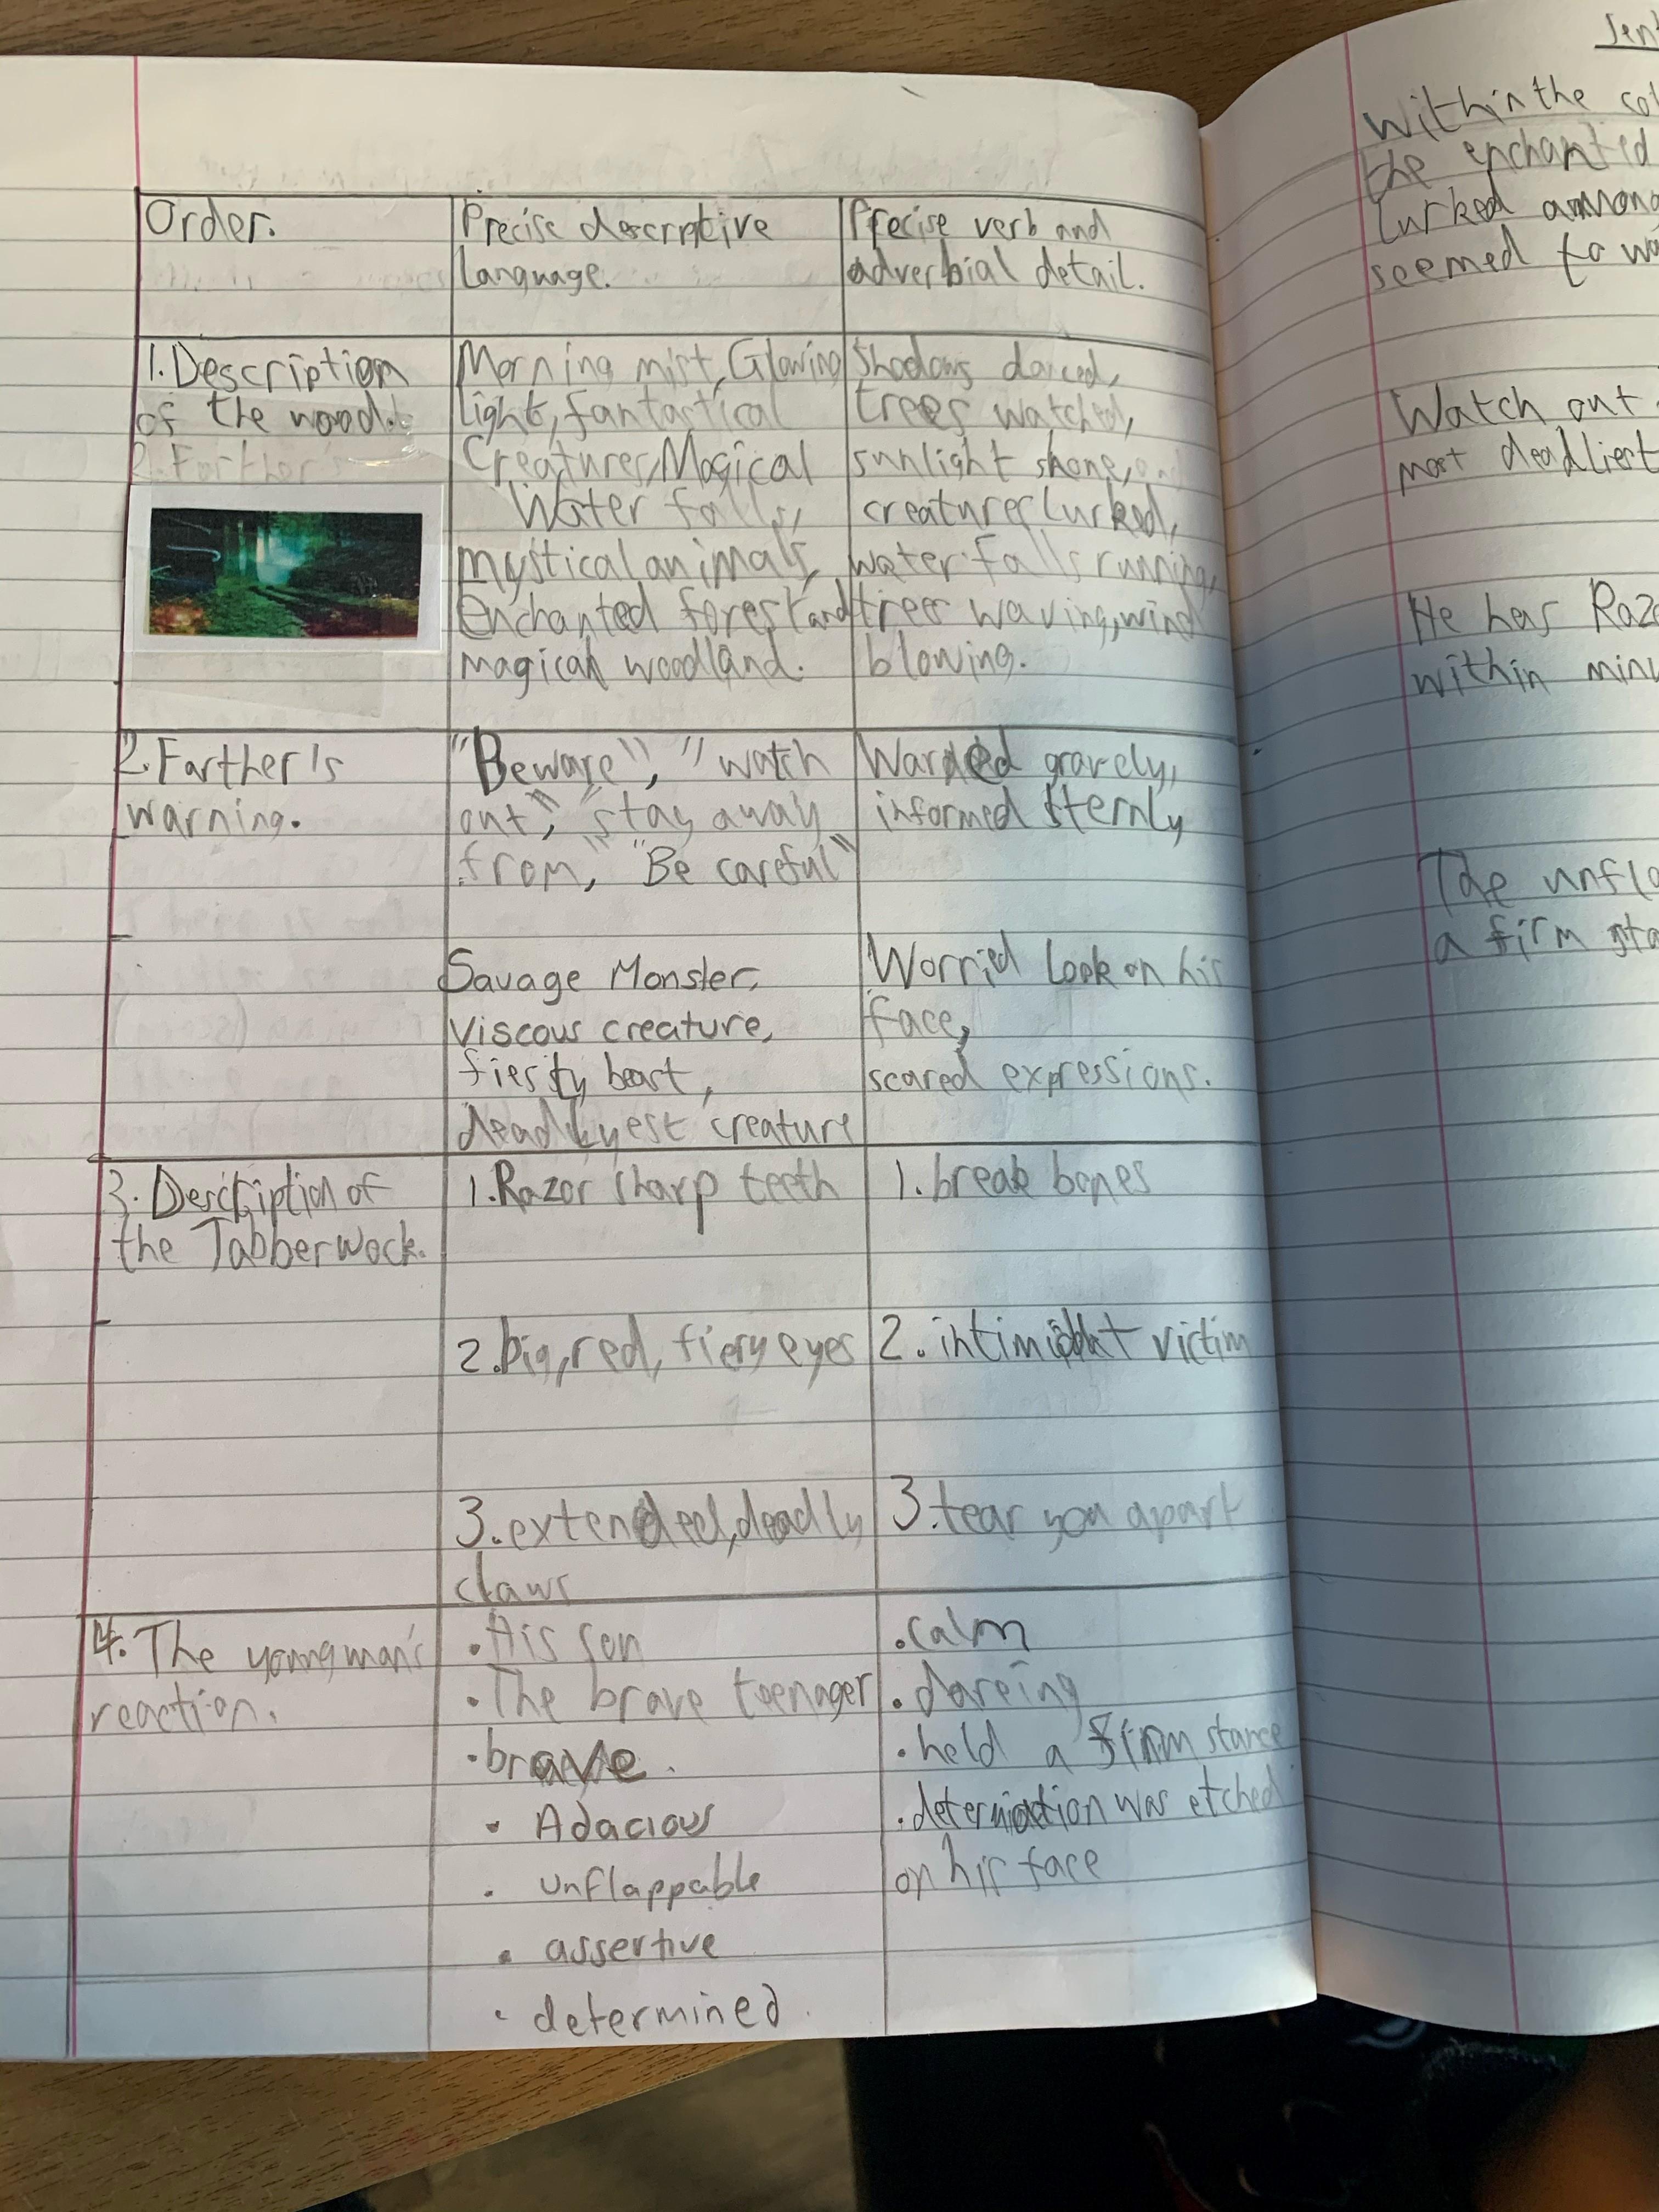 Order.
Precise descriptive
language.
Precise verb and
adverbial detail.
1. Description
of the wood.
2. Farther's
Morning mist, Glowing
light, fantastical
Creatures, Magical
Water falls,
mystical animals,
enchanted forest and
magical woodland.
Shadows danced,
trees watched,
sunlight shone, and
creatures lurked,
water falls running,
trees waving, wind
blowing.
2. Farther's
warning.
"Beware", "watch
out", "stay away
from," "Be careful"
Savage Monster,
Viscous creature,
fiesty beast,
deadlyest creature
Warned gravely,
informed sternly
Worried look on his
face,
scared expressions.
3. Description of
the Jabberwock.
1. Razor sharp teeth
2. big, red, fiery eyes
3. extended, deadly
claws
1. break bones
2. victim
3. tear you apart
4. The young man's
reaction.
• His son
• The brave teenager
• brave.
• Adacious
• unflappable
• assertive
• determined.
• calm
• dareing
• held a firm stance
• was etched
on his face
Within the
the enchanted
lurked
seemed to
Watch out
most deadliest
He has
within
The
a firm